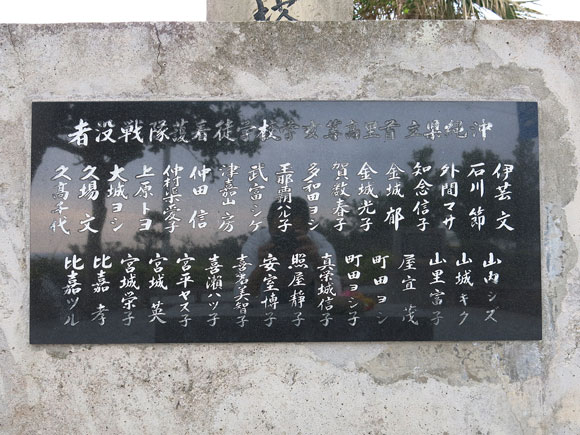 沖縄県立首里高等女学校学徒看護隊戦没者
伊芸文
石川節
外間マサ
知念信子
金城郁
金城光子
賀数春子
多和田ヨシ
玉那覇ハル子
武富シゲ
津嘉山房
仲田信
上原トヨ
大城ヨシ
久場文
久高千代
山内シズ
山城キク
山里富子
屋宜茂
町田ヨシ
町田ヨシ子
真栄城信子
照屋静子
安室博子
喜名美智子
喜瀬ハツ子
宮平ヤス子
宮城英
宮城栄子
比嘉孝
比嘉ツル